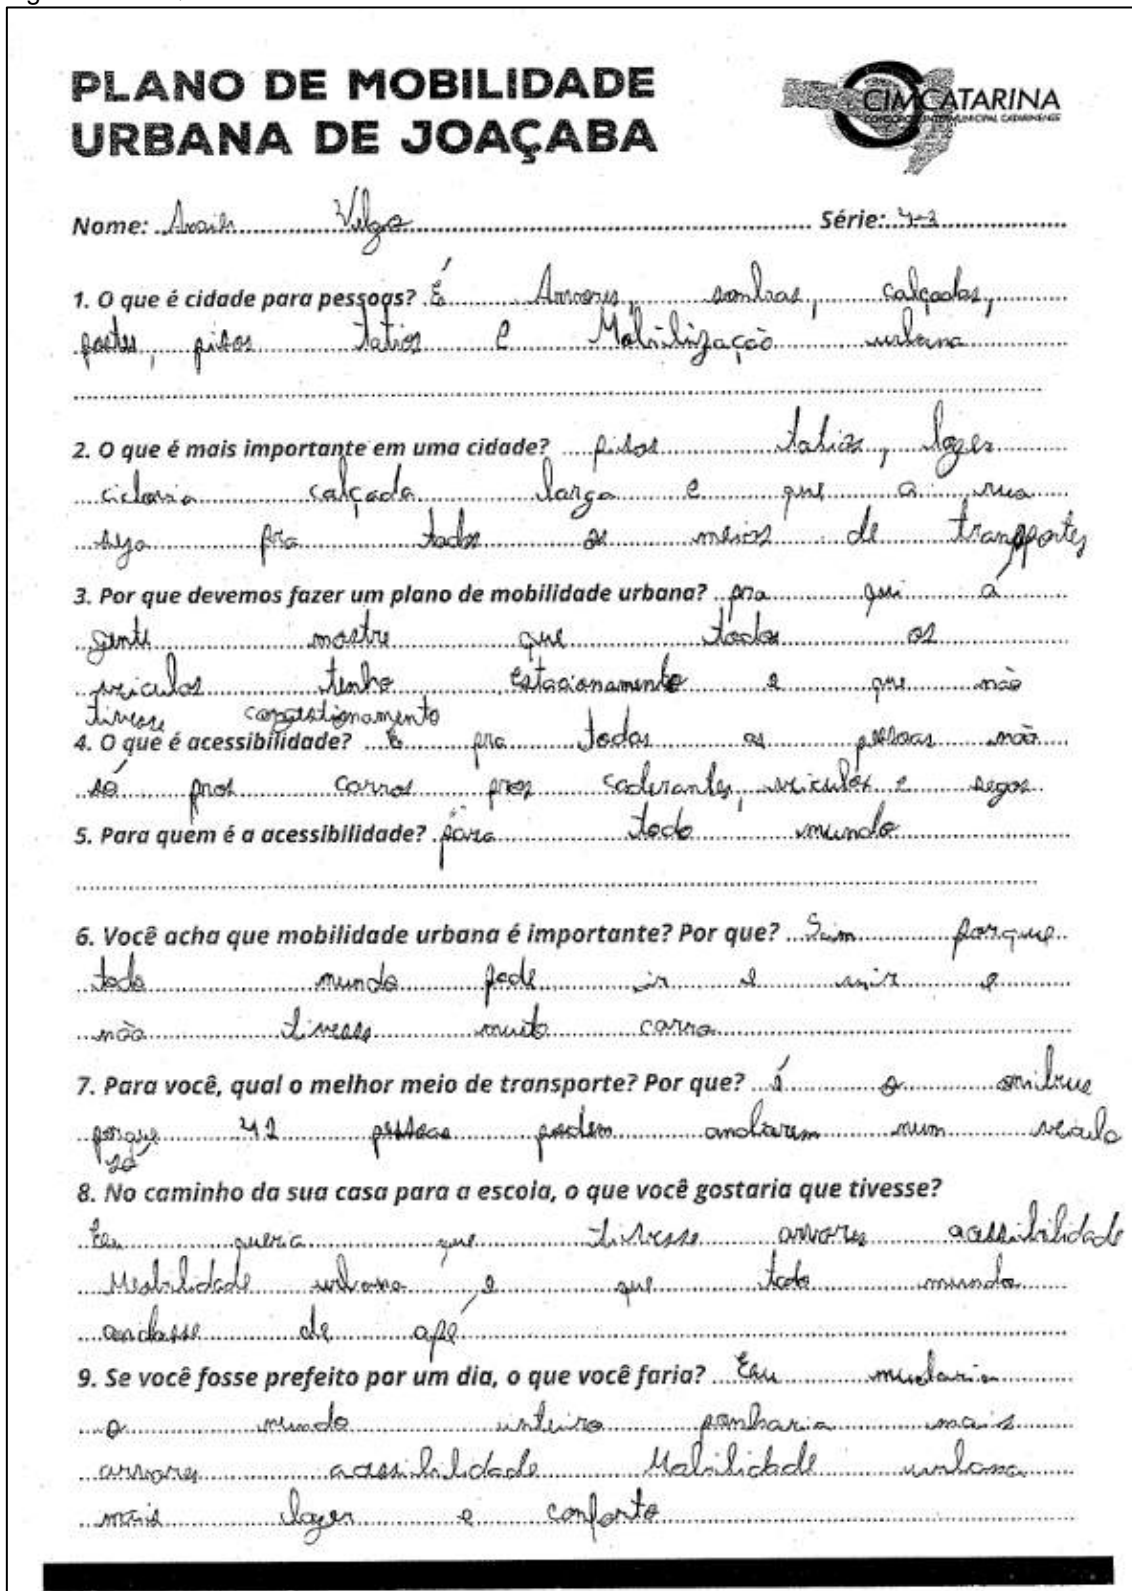 PLANO DE MOBILIDADE
URBANA DE JOAÇABA
CIMCATARINA
CONSÓRCIO INTERMUNICIPAL CATARINENSE
Nome: Série:
1. O que é cidade para pessoas? É Arvores, sombras, calçadas,
postes, pisos tatios e Mobilização urbana
2. O que é mais importante em uma cidade? pisos tatios, lazer
ciclovia calçada larga e que a rua
seja pra todos os meios de transportes
3. Por que devemos fazer um plano de mobilidade urbana? pra que á
gente mostre que todos os
veiculos tenho Estacionamento e que não
tivesse congestionamento
4. O que é acessibilidade? É pra todas as pessoas não
só pros carros pros caderantes, veiculos e segos
5. Para quem é a acessibilidade? para todo mundo
6. Você acha que mobilidade urbana é importante? Por que? Sim porque
todo mundo pode ir e vir e
não tivesse muito carro
7. Para você, qual o melhor meio de transporte? Por que? é o onibus
porque 42 pessoas podem andarem num veiculo
só
8. No caminho da sua casa para a escola, o que você gostaria que tivesse?
Eu queria que tivesse arvores acessibilidade
Mobilidade urbana e que todo mundo
andasse de apé
9. Se você fosse prefeito por um dia, o que você faria? Eu mudaria
o mundo inteiro ponharia mais
arvores acessibilidade Mobilidade urbana
mais lazer e conforto